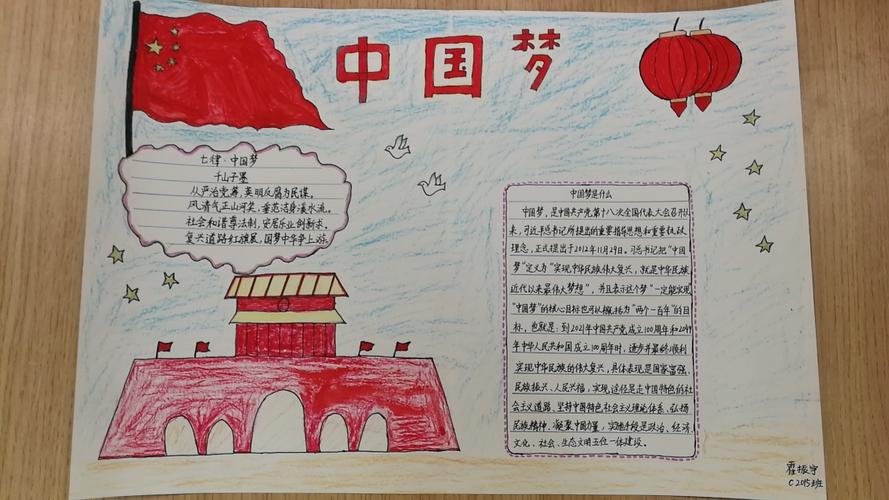 中国梦
七律·中国梦
千山子墨
从严治党寡,英明反腐为民谋。
风清气正山河笑,垂范洁身溪水流。
社会和谐尊法制,安居乐业创新求。
复兴道路红旗展,国梦中华争上游
中国梦是什么
中国梦,是中国共产党第十八次全国代表大会召开以
来,习近平总书记所提出的重要指导思想和重要执政
理念,正式提出于2012年11月29日。习总书记把“中国
梦”定义为“实现中华民族伟大复兴,就是中华民族
近代以来最伟大梦想”,并且表示这个梦“一定能实现
“中国梦”的核心目标也可以概括为“两个一百年”的目
标,也就是:到2021年中国共产党成立100周年和2049
年中华人民共和国成立100周年时,逐步并最终顺利
实现中华民族的伟大复兴,具体表现是国家富强、
民族振兴、人民幸福,实现途径是走中国特色的社
会主义道路、坚持中国特色社会主义理论体系、弘扬
民族精神、凝聚中国力量,实施手段是政治、经济
文化、社会、生态文明五位一体建设。
霍振宇
C2015班